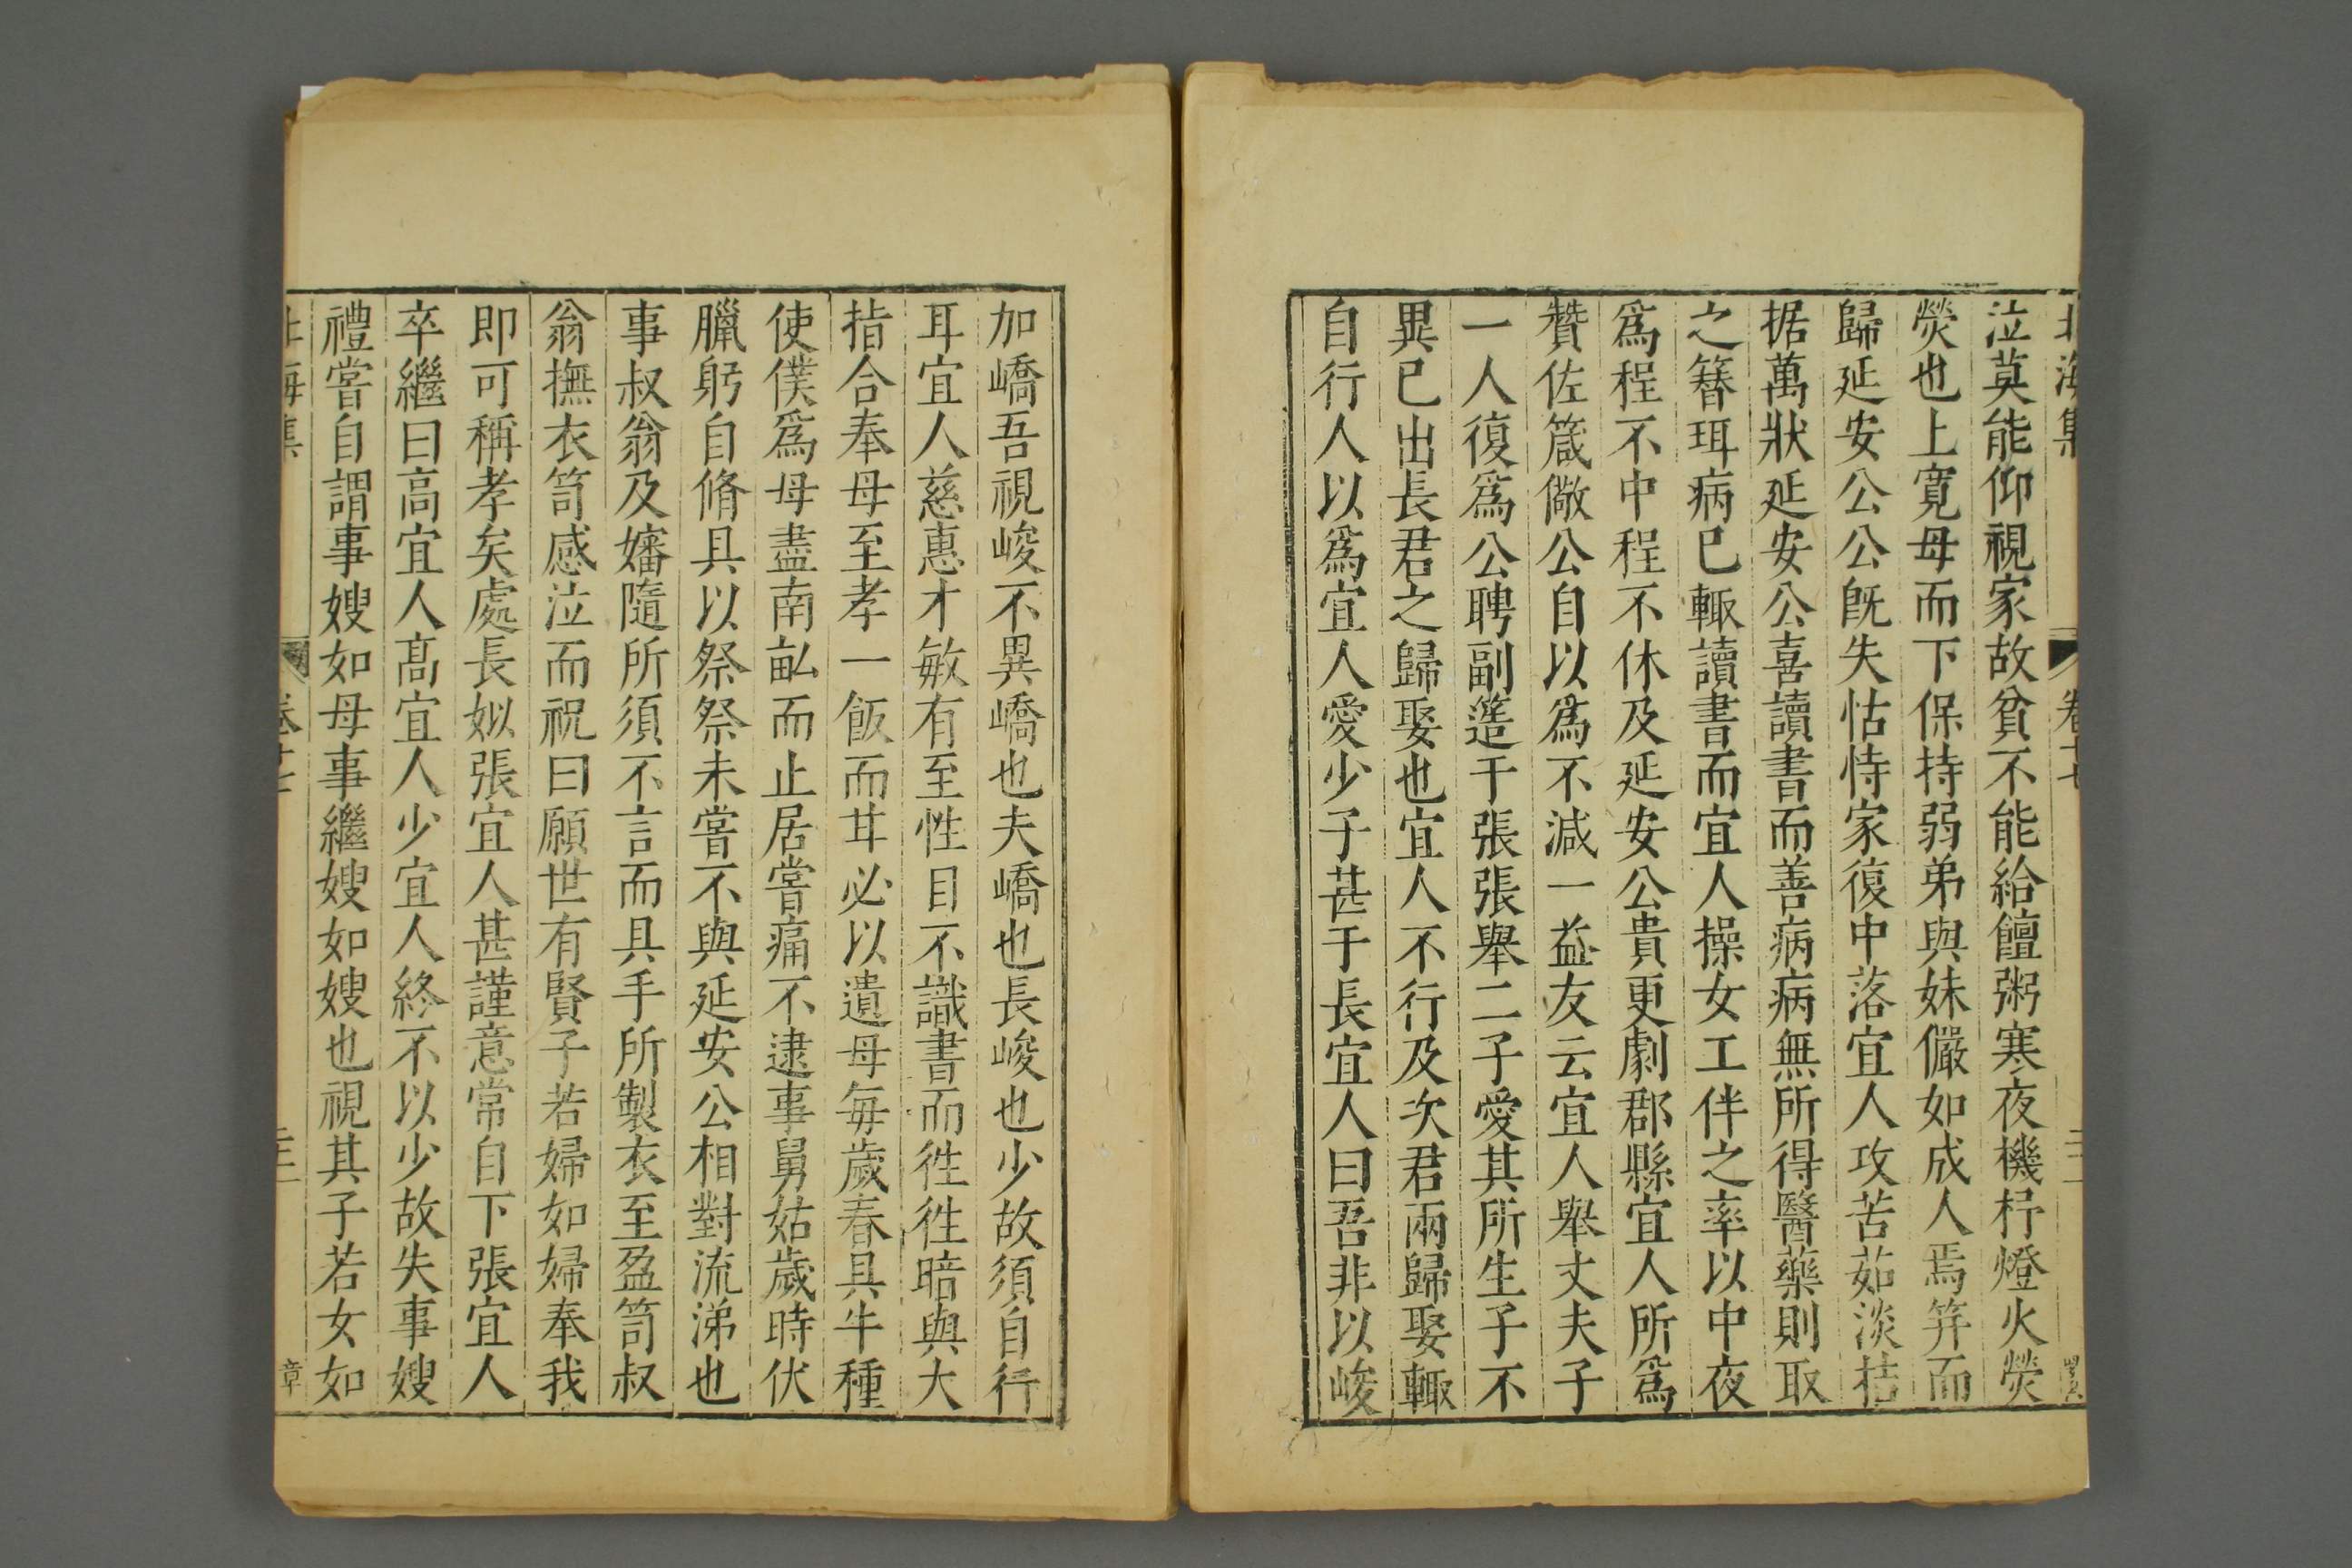 北海集 卷十七
泣莫能仰視家故貧不能給饘粥寒夜機杼燈火熒
熒也上寬母而下保持弱弟與妹儼如成人焉笄而
歸延安公公旣失怙恃家復中落宜人攻苦茹淡拮
据萬狀延安公喜讀書而善病病無所得醫藥則取
之簪珥病已輙讀書而宜人操女工伴之率以中夜
爲程不中程不休及延安公貴更劇郡縣宜人所爲
贊佐箴儆公自以爲不減一益友云宜人舉丈夫子
一人復爲公聘副簉于張張舉二子愛其所生子不
異已出長君之歸娶也宜人不行及次君兩歸娶輙
自行人以爲宜人愛少子甚于長宜人曰吾非以峻
加嶠吾視峻不異嶠也夫嶠也長峻也少故須自行
耳宜人慈惠才敏有至性目不識書而徃徃暗與大
指合奉母至孝一飯而甘必以遺母每歲春具牛種
使僕爲母盡南畝而止居嘗痛不逮事舅姑歲時伏
臘躬自脩具以祭祭未嘗不與延安公相對流涕也
事叔翁及嬸隨所須不言而具手所製衣至盈笥叔
翁撫衣笥感泣而祝曰願世有賢子若婦如婦奉我
即可稱孝矣處長姒張宜人甚謹意常自下張宜人
卒繼曰高宜人高宜人少宜人終不以少故失事嫂
禮嘗自謂事嫂如母事繼嫂如嫂也視其子若女如
北海集 卷十七 章